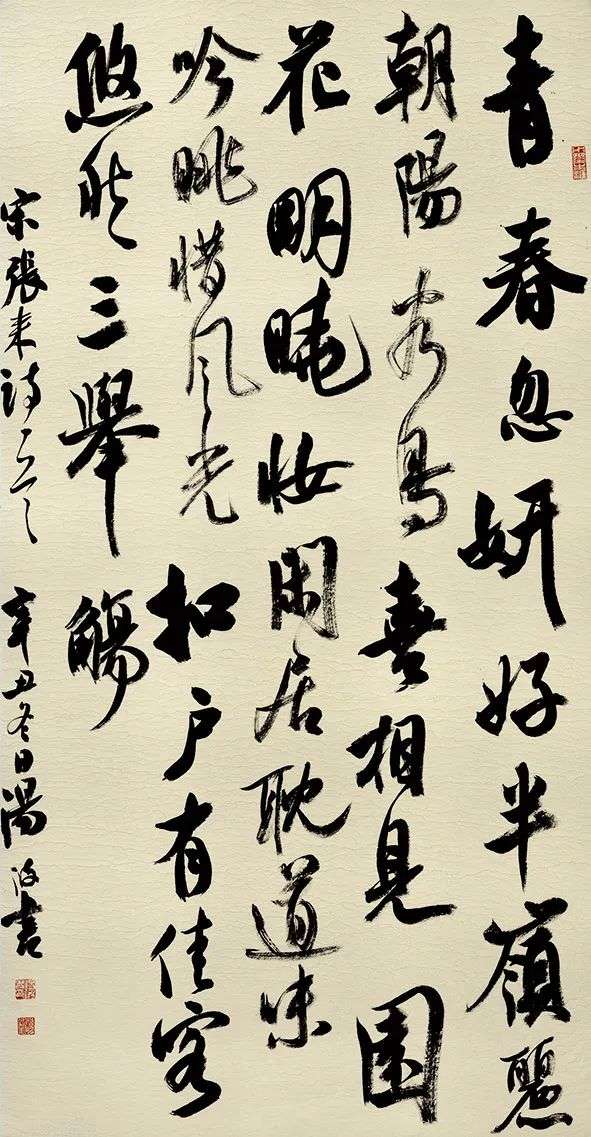 青春忽妍好半嶺麗
朝陽谷鳥喜相見園
花明曉妝閑居耽道味
吟眺惜風光扣户有佳客
悠然三舉觴
宋張耒詩一首 辛丑冬日湯書